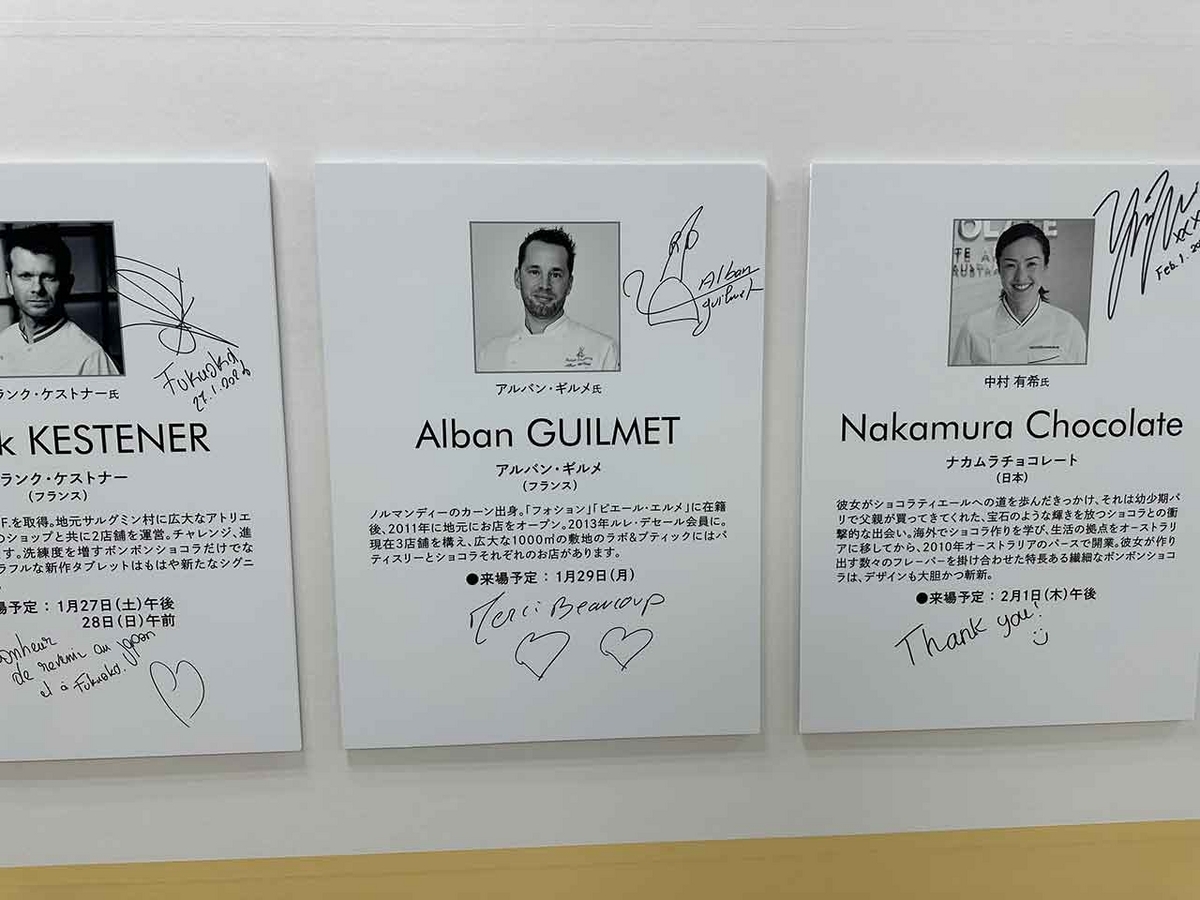 ランク・ケストナー氏
Fukuoka
27.1.2024
k KESTENER
ランク・ケストナー
(フランス)
F.を取得。地元サルグミン村に広大なアトリエ
のショップと共に2店舗を運営。チャレンジ、進
す。洗練度を増すボンボンショコラだけでな
ラフルな新作タブレットはもはや新たなシグニ
場予定：1月27日(土)午後
28日(日)午前
onheur
de revenir au Japon
et à Fukuoka!
Alban
Guilmet
アルバン・ギルメ氏
Alban GUILMET
アルバン・ギルメ
(フランス)
ノルマンディーのカーン出身。「フォション」「ピエール・エルメ」に在籍
後、2011年に地元にお店をオープン。2013年ルレ・デセール会員に。
現在3店舗を構え、広大な1000㎡の敷地のラボ&ブティックにはパ
ティスリーとショコラそれぞれのお店があります。
●来場予定：1月29日(月)
Merci Beaucoup
XXX
Feb.1.20
中村 有希氏
Nakamura Chocolate
ナカムラチョコレート
(日本)
彼女がショコラティエールへの道を歩んだきっかけ、それは幼少期パ
リで父親が買ってきてくれた、宝石のような輝きを放つショコラとの衝
撃的な出会い。海外でショコラ作りを学び、生活の拠点をオーストラリ
アに移してから、2010年オーストラリアのパースで開業。彼女が作り
出す数々のフレーバーを掛け合わせた特長ある繊細なボンボンショコ
ラは、デザインも大胆かつ斬新。
●来場予定：2月1日(木)午後
Thank you!